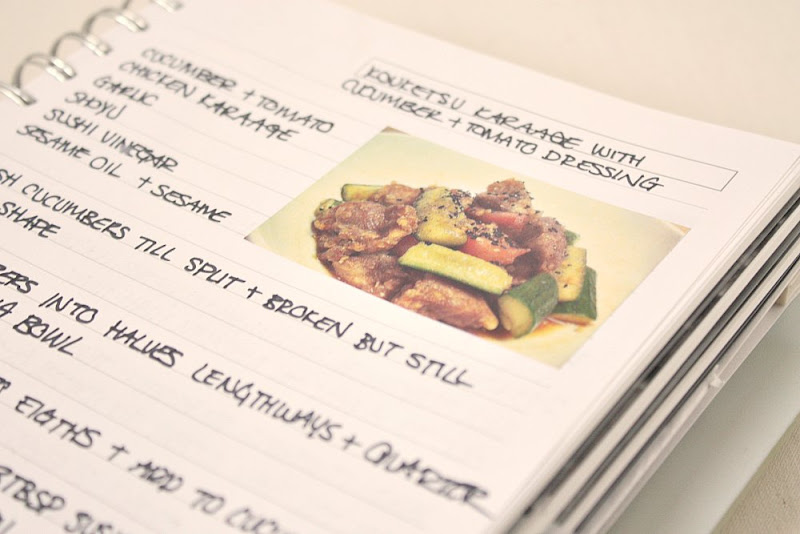 KOUKETSU KARAAGE WITH
CUCUMBER + TOMATO DRESSING
CUCUMBER + TOMATO
CHICKEN KARAAGE
GARLIC
SHOYU
SUSHI VINEGAR
SESAME OIL + SESAME
SH CUCUMBERS TILL SPLIT + BROKEN BUT STILL
SHAPE
BERS INTO HALVES LENGTHWAYS + QUARTER
BOWL
EIGTHS + ADD TO CUCU
RTBSP SUSH